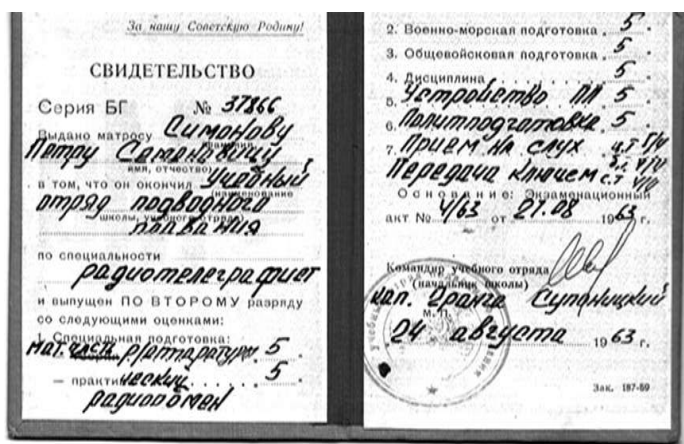 За нашу Советскую Родину!
СВИДЕТЕЛЬСТВО
Серия БГ № 37866
Выдано матросу Симонову
фамилия
Петру Семеновичу
имя, отчество
в том, что он окончил Учебный
(наименование
отряд подводного
школы, учебного отряда)
плавания
по специальности
радиотелеграфист
и выпущен ПО ВТОРОМУ разряду
со следующими оценками:
1. Специальная подготовка:
мат. часть р/аппаратуры 5
— практический 5
радиообмен
2. Военно-морская подготовка 5
3. Общевойсковая подготовка 5
4. Дисциплина 5
5. Устройство ПЛ 5
6. Политподготовка 5
7. Прием на слух
Передача ключем
Основание: Экзаменационный
акт № 4/63 от 21.08 1963 г.
Командир учебного отряда
(начальник школы)
кап. 2 ранга Супоницкий
М. П.
24 августа 1963 г.
Зак. 187-59